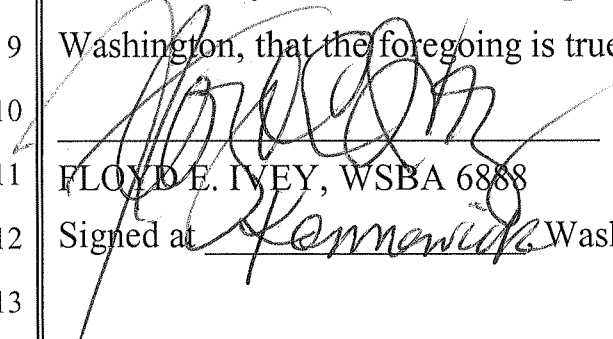 9 Washington, that the foregoing is true
10
11 FLOYD E. IVEY, WSBA 6888
12 Signed at Kennewick Wash
13